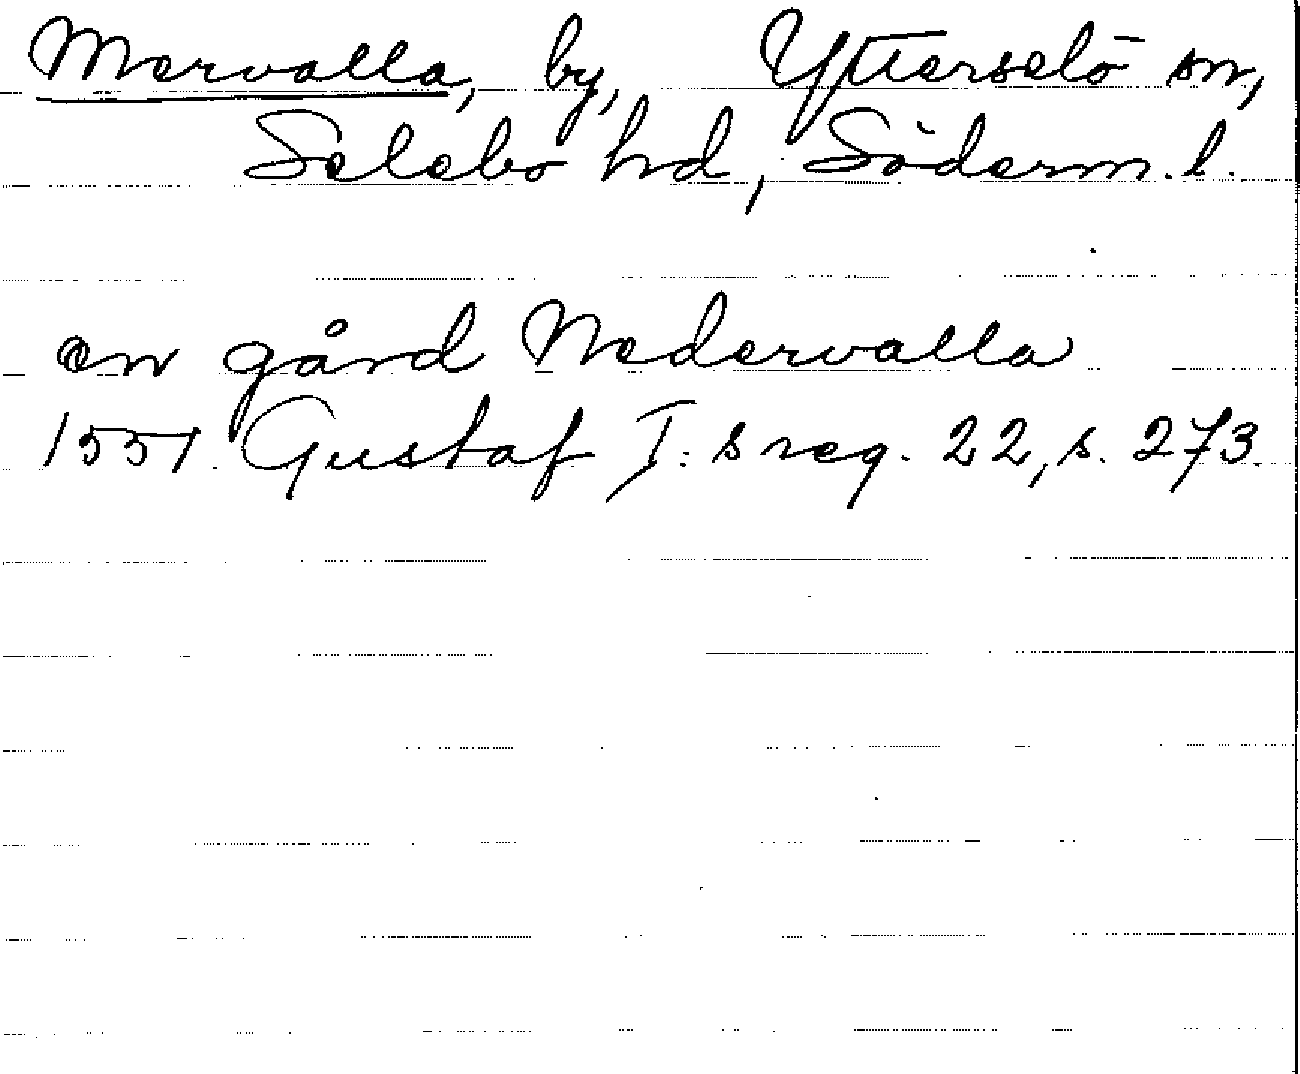 Mervalla, by, Ytterselö sn,
Selebo hd, Söderm. l.
en gård Nedervalla
1551. Gustaf I:s reg. 22, s. 273.